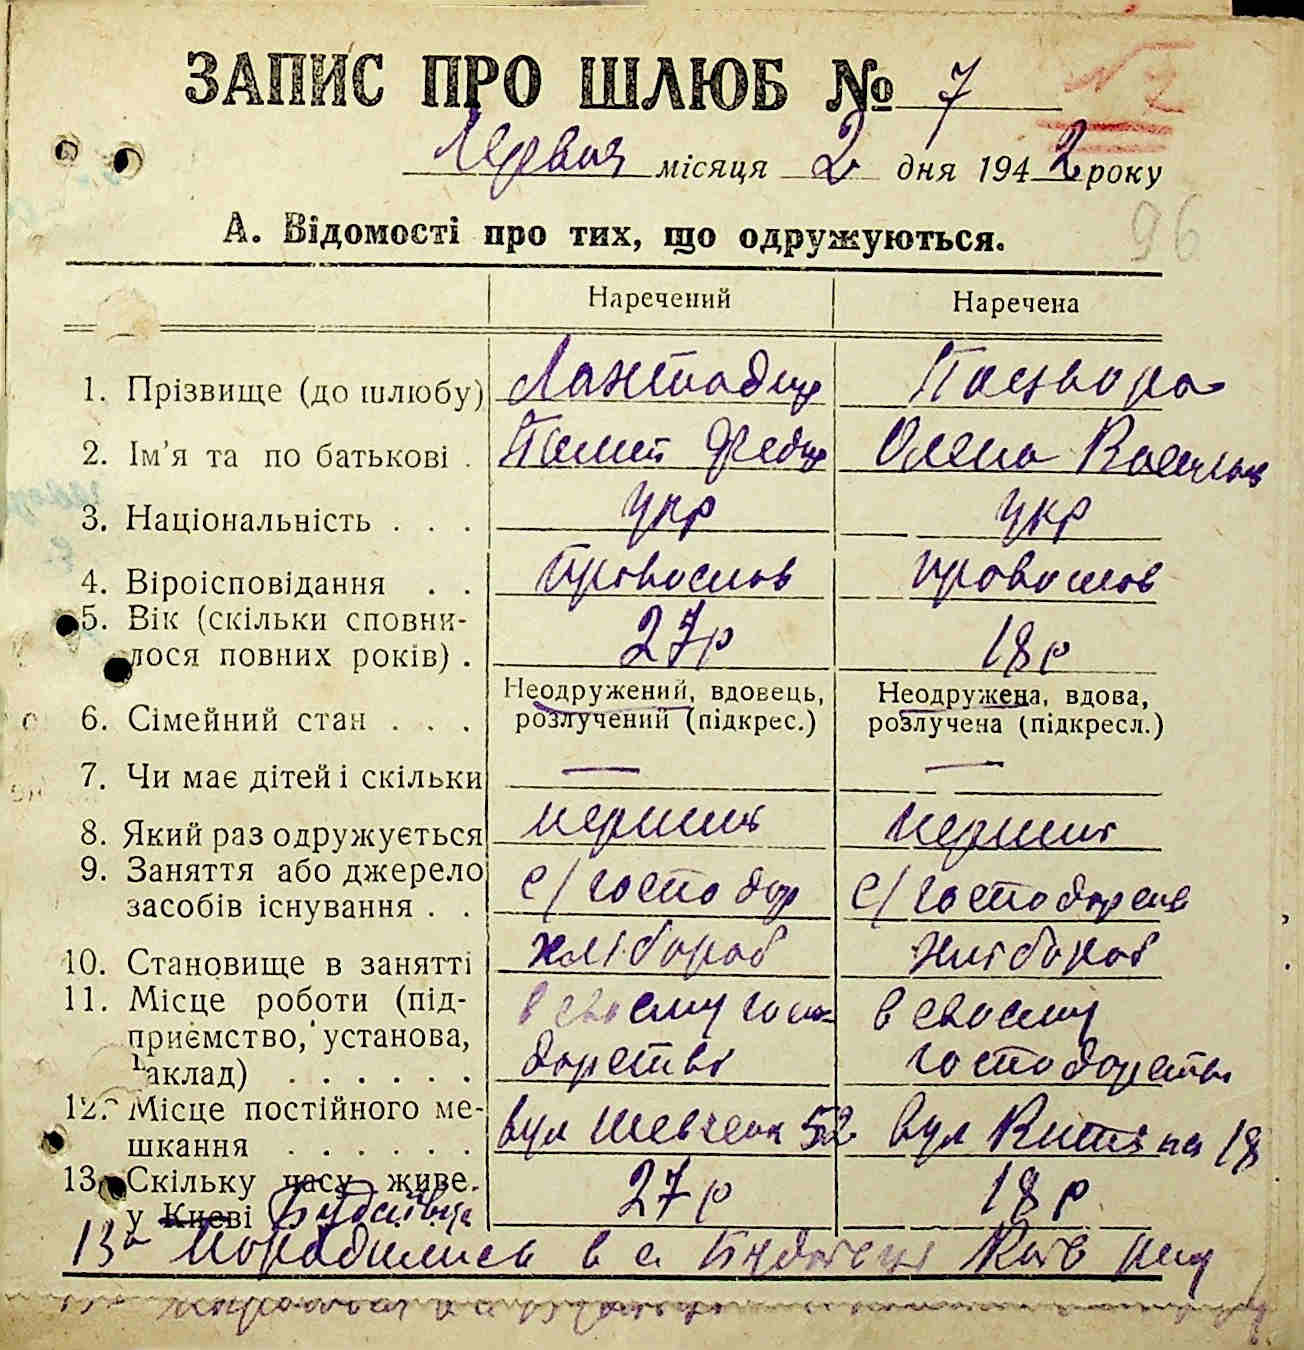 ЗАПИС ПРО ШЛЮБ № 7 № 7
Червня місяця 2 дня 1942 року
96
А. Відомості про тих, що одружуються.
Наречений Наречена
1. Прізвище (до шлюбу)
2. Ім'я та по батькові . Олена
3. Національність . . . укр укр
4. Віроісповідання . . православ православ
5. Вік (скільки сповни-
лося повних років) . 27 р 18 р
Неодружений, вдовець, Неодружена, вдова,
6. Сімейний стан . . . розлучений (підкрес.) розлучена (підкресл.)
7. Чи має дітей і скільки — —
8. Який раз одружується перший перший
9. Заняття або джерело
засобів існування . . с/господар с/господарств
10. Становище в занятті хлібороб хлібороб
11. Місце роботи (під- в своєму госпо- в своєму
приємство, установа, дарстві господарстві
заклад) . . . . . .
12. Місце постійного ме- вул Шевченк 52 вул 18
шкання . . . . . .
13. Скільку часу живе 27 р 18 р
у Києві
13а народились в с.